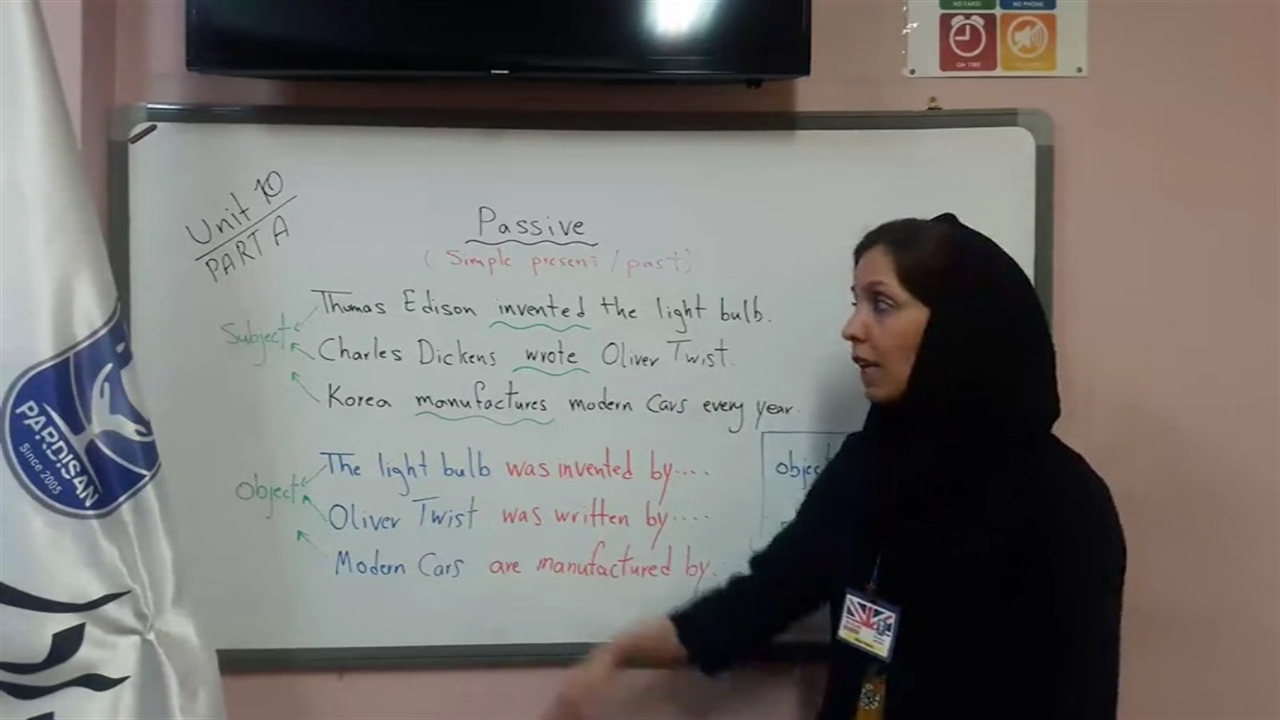 NO FARSI
NO PHONE
ON TIME
Unit 10
PART A
Passive
(Simple present / past)
Thomas Edison invented the light bulb.
Subject
Charles Dickens wrote Oliver Twist.
Korea manufactures modern Cars every year.
The light bulb was invented by....
Object
Oliver Twist was written by....
Modern Cars are manufactured by.
objec
PARDISAN
Since 2005